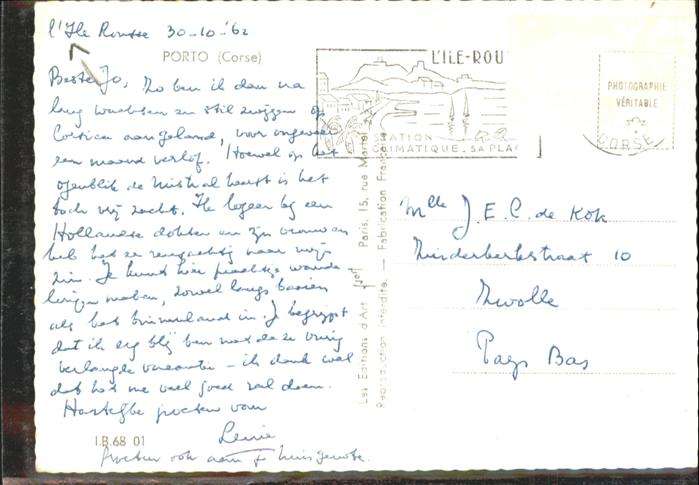 l'Ile Rousse 30-10-'62
PORTO (Corse)
Beste Jo, Zo ben ik dan na
lang wachten en stil zwijgen op
Corsica aangeland, voor ongeveer
een maand verlof. Hoewel op het
ogenblik de Mistral heerst is het
toch vrij zacht. Ik logeer bij een
Hollandse dokter en zijn vrouw en
heb het er naar mijn
zin. Je kunt hier prachtige wande-
lingen maken, zowel langs baaien
als het binnenland in. Je begrijpt
dat ik erg blij ben met deze vurig
verlangde vacantie - ik denk wel
dat het me veel goed zal doen.
Hartelijke groeten van
Lenie
groeten ook aan je huisgenote.
I.B.68 01
Les Editions d'Art Yvon Paris, 15, rue Martel
Reproduction interdite. — Fabrication Française
L'ILE-ROU
STATION
CLIMATIQUE. SA PLAGE
PHOTOGRAPHIE
VÉRITABLE
CORSE
Mlle J. E. C. de Kok
Zwolle
Pays Bas